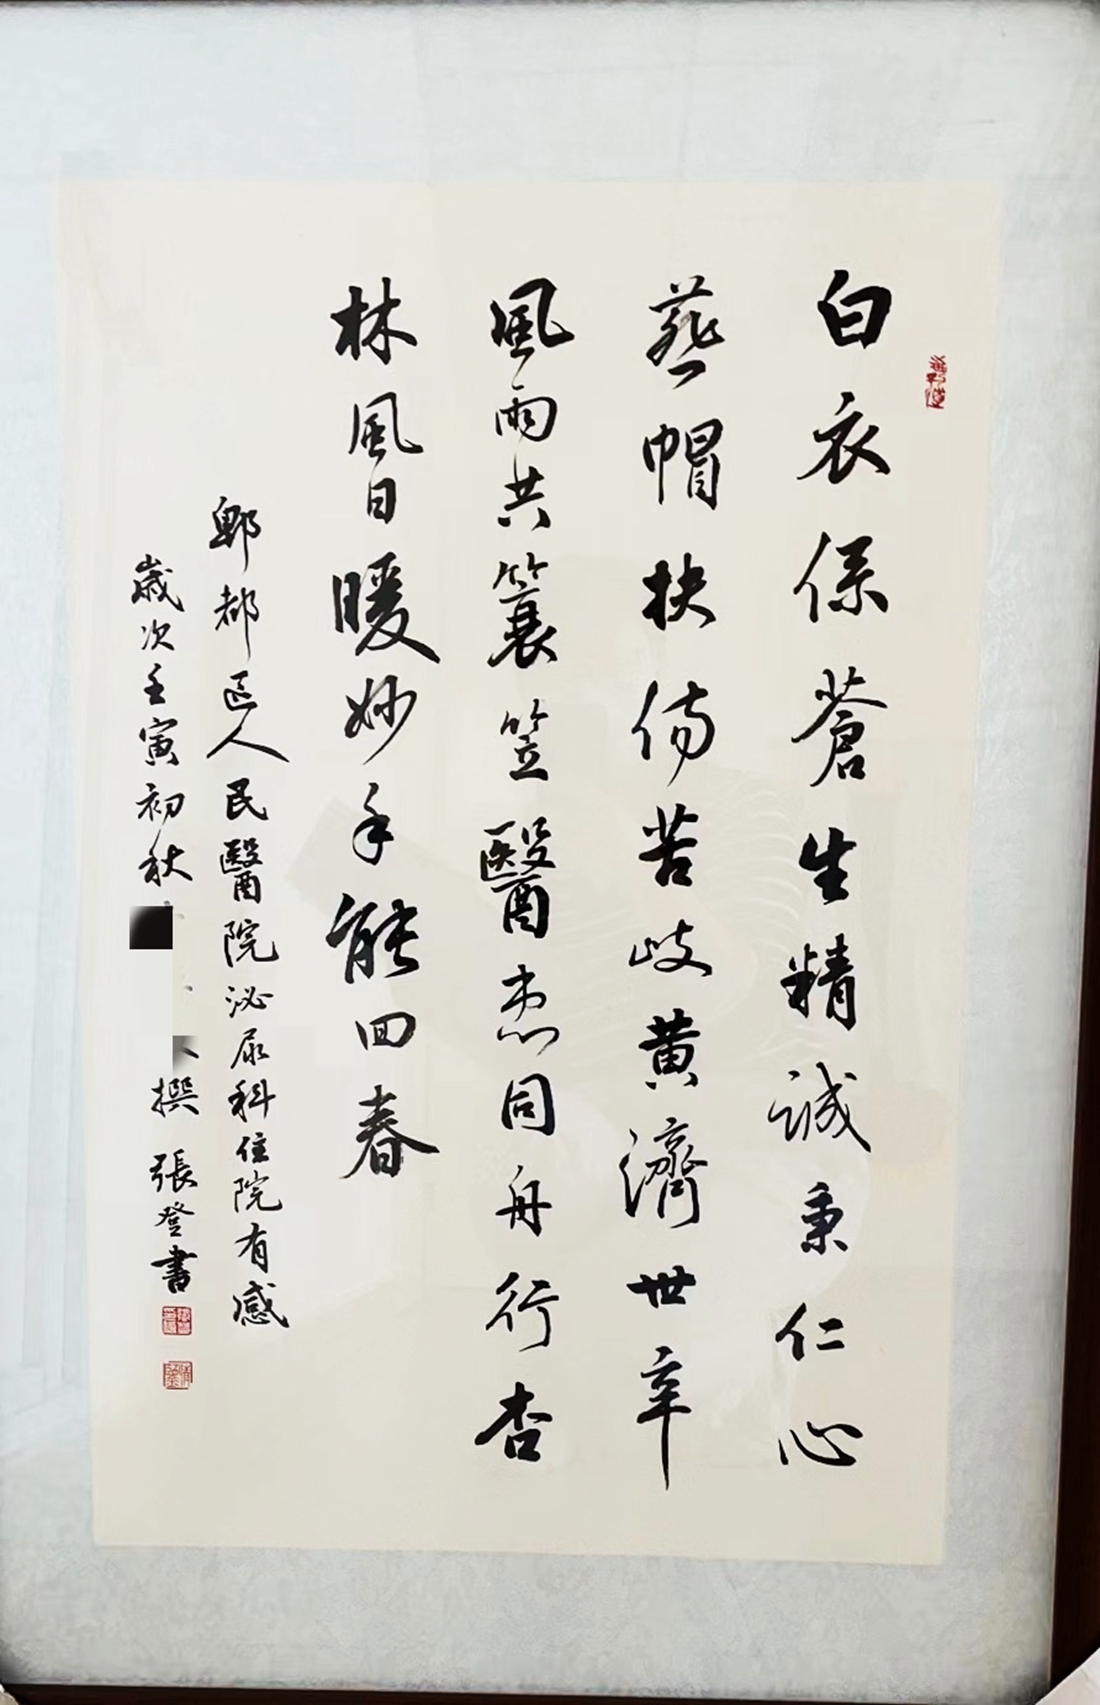 白衣係蒼生精誠秉仁心
燕帽扶傷苦岐黄濟世辛
風雨共簑笠醫患同舟行杏
林風日暖妙手能回春
郫都区人民醫院泌尿科住院有感
歲次壬寅初秋
撰張登書